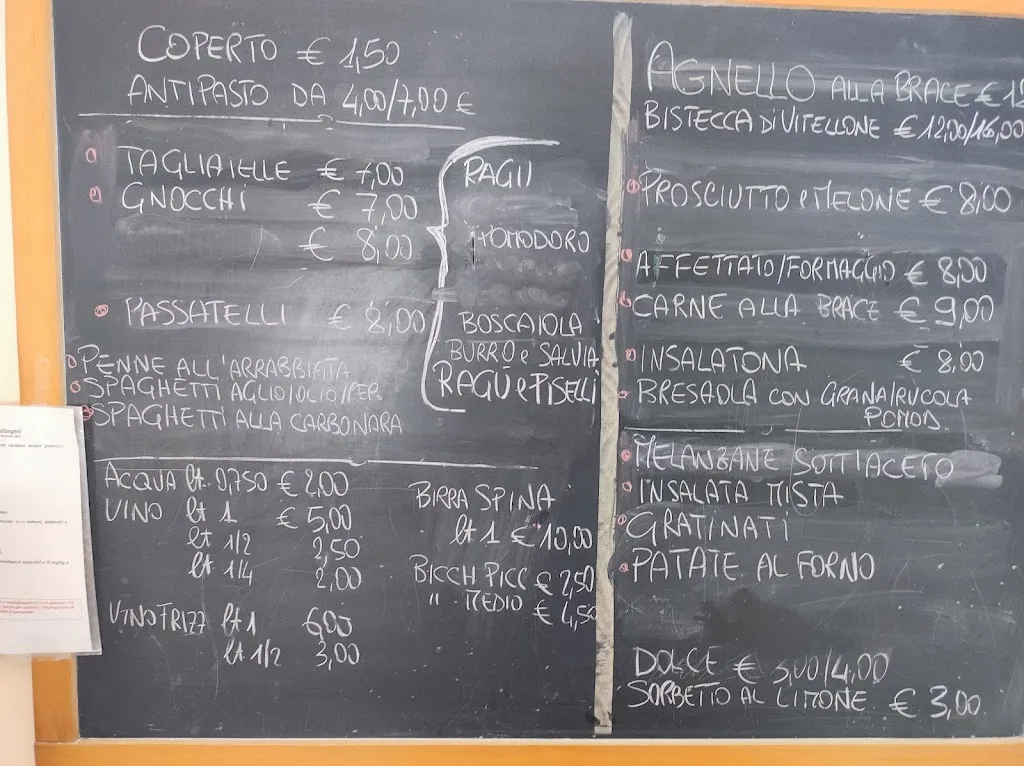 COPERTO € 1,50
ANTIPASTO DA 4,00/7,00 €
TAGLIATELLE € 7,00
GNOCCHI € 7,00
€ 8,00
PASSATELLI € 8,00
RAGÙ
POMODORO
BOSCAIOLA
BURRO e SALVIA
RAGÙ e PISELLI
PENNE ALL'ARRABBIATA
SPAGHETTI AGLIO/OLIO/PEP.
SPAGHETTI ALLA CARBONARA
ACQUA lt. 0,750 € 2,00
VINO lt 1 € 5,00
lt 1/2 2,50
lt 1/4 2,00
VINO FRIZZ lt 1 6,00
lt 1/2 3,00
BIRRA SPINA
lt 1 € 10,00
BICCH PICC € 2,50
" MEDIO € 4,50
AGNELLO ALLA BRACE €
BISTECCA DI VITELLONE € 12,00/16,00
PROSCIUTTO e MELONE € 8,00
AFFETTATO/FORMAGGIO € 8,00
CARNE ALLA BRACE € 9,00
INSALATONA € 8,00
BRESAOLA CON GRANA/RUCOLA
POMOD.
MELANZANE SOTTACETO
INSALATA MISTA
GRATINATI
PATATE AL FORNO
DOLCE € 3,00/4,00
SORBETTO AL LIMONE € 3,00